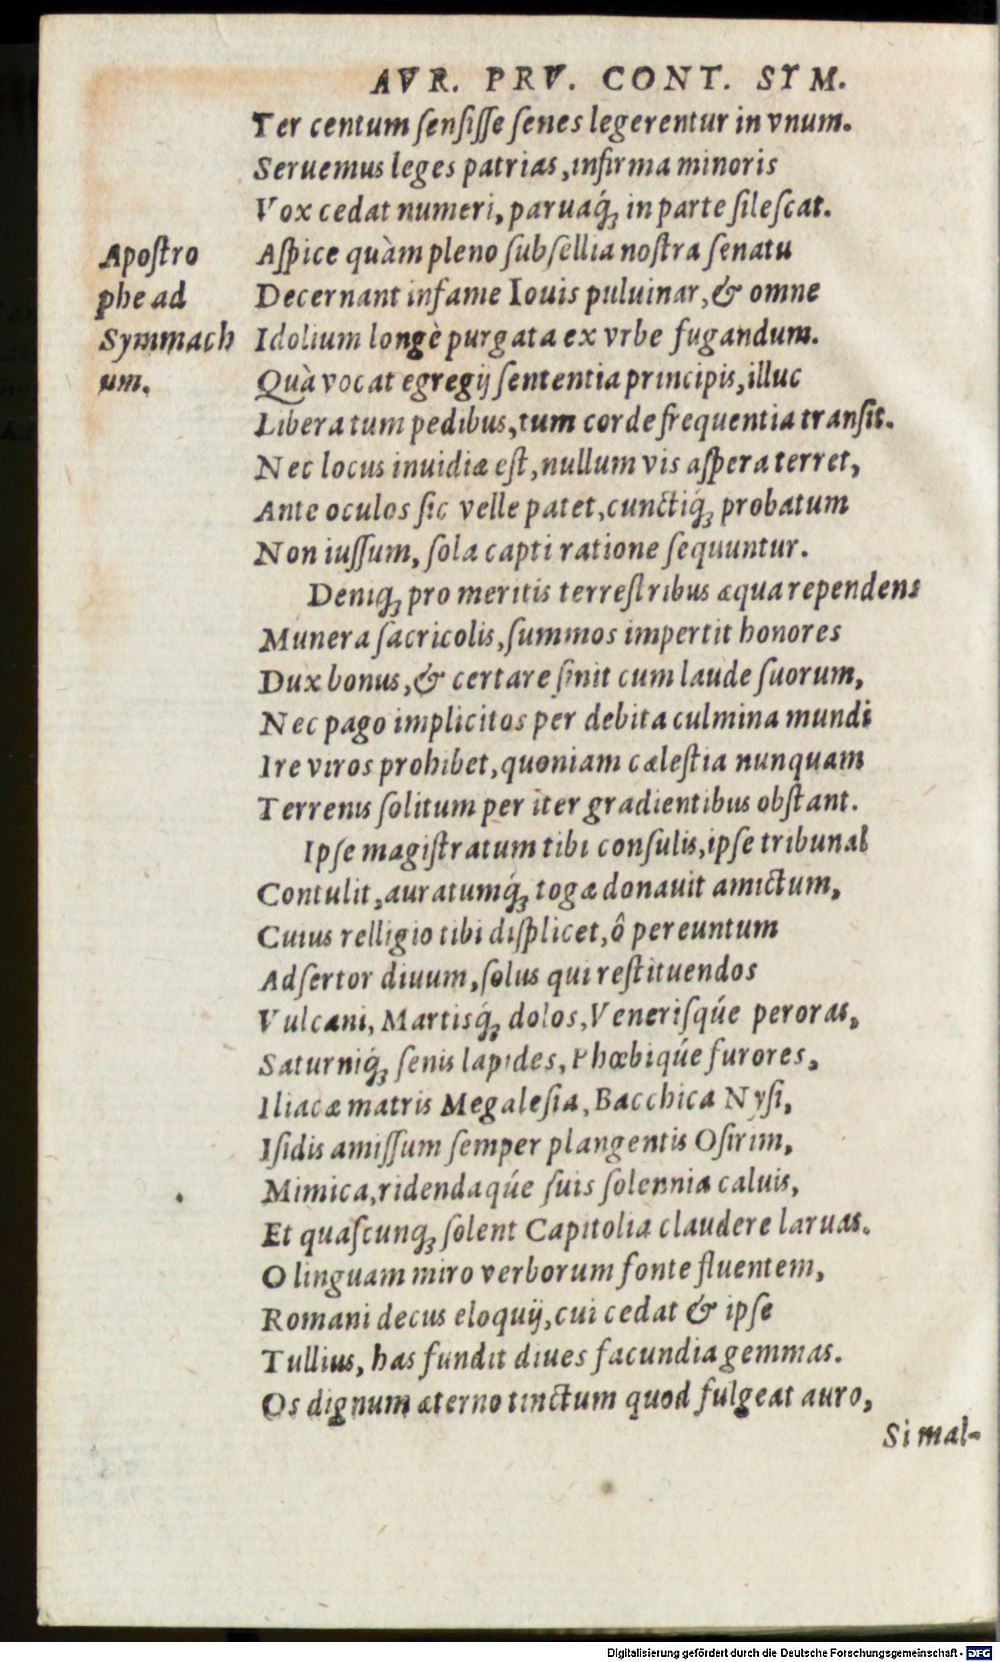 AVR. PRV. CONT. SYM.
Ter centum ſenſiſſe ſenes legerentur in vnum.
Seruemus leges patrias, infirma minoris
Vox cedat numeri, paruaq́ꝫ in parte ſileſcat.
Apoſtro
phe ad
Symmach
um.
Aſpice quàm pleno ſubſellia noſtra ſenatu
Decernant infame Iouis puluinar, & omne
Idolium longè purgata ex vrbe fugandum.
Quà vocat egregij ſententia principis, illuc
Libera tum pedibus, tum corde frequentia tranſit.
Nec locus inuidiæ eſt, nullum vis aſpera terret,
Ante oculos ſic velle patet, cunctiq́ꝫ probatum
Non iuſſum, ſola capti ratione ſequuntur.
Deniqꝫ pro meritis terreſtribus æqua rependens
Munera ſacricolis, ſummos impertit honores
Dux bonus, & certare ſinit cum laude ſuorum,
Nec pago implicitos per debita culmina mundi
Ire viros prohibet, quoniam cæleſtia nunquam
Terrenis ſolitum per iter gradientibus obſtant.
Ipſe magiſtratum tibi conſulis, ipſe tribunal
Contulit, auratumq́ꝫ togæ donauit amictum,
Cuius relligio tibi diſplicet, ô pereuntum
Adſertor diuum, ſolus qui reſtituendos
Vulcani, Martisq́ꝫ dolos, Veneriſqúe peroras,
Saturniq́ꝫ ſenis lapides, Phœbiqúe furores,
Iliacæ matris Megaleſia, Bacchica Nyſi,
Iſidis amiſſum ſemper plangentis Oſirim,
Mimica, ridendaqúe ſuis ſolennia caluis,
Et quaſcunqꝫ ſolent Capitolia claudere laruas.
O linguam miro verborum fonte fluentem,
Romani decus eloquij, cui cedat & ipſe
Tullius, has fundit diues facundia gemmas.
Os dignum æterno tinctum quod fulgeat auro,
Si mal-
Digitalisierung gefördert durch die Deutsche Forschungsgemeinschaft - DFG